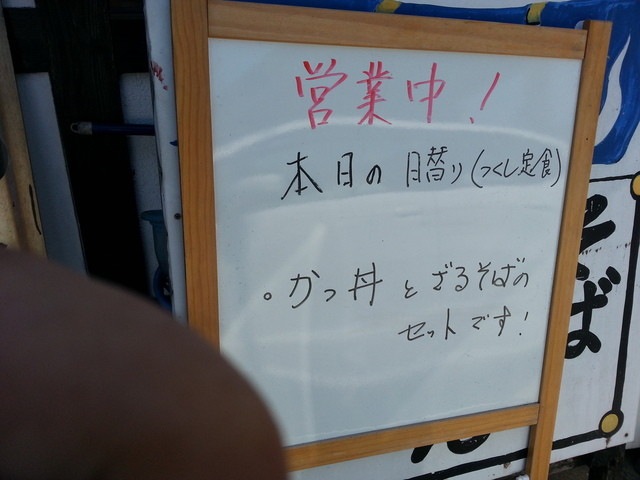 営業中!
本日の日替り(つくし定食)
。かつ丼とざるそばの
セットです!
そば